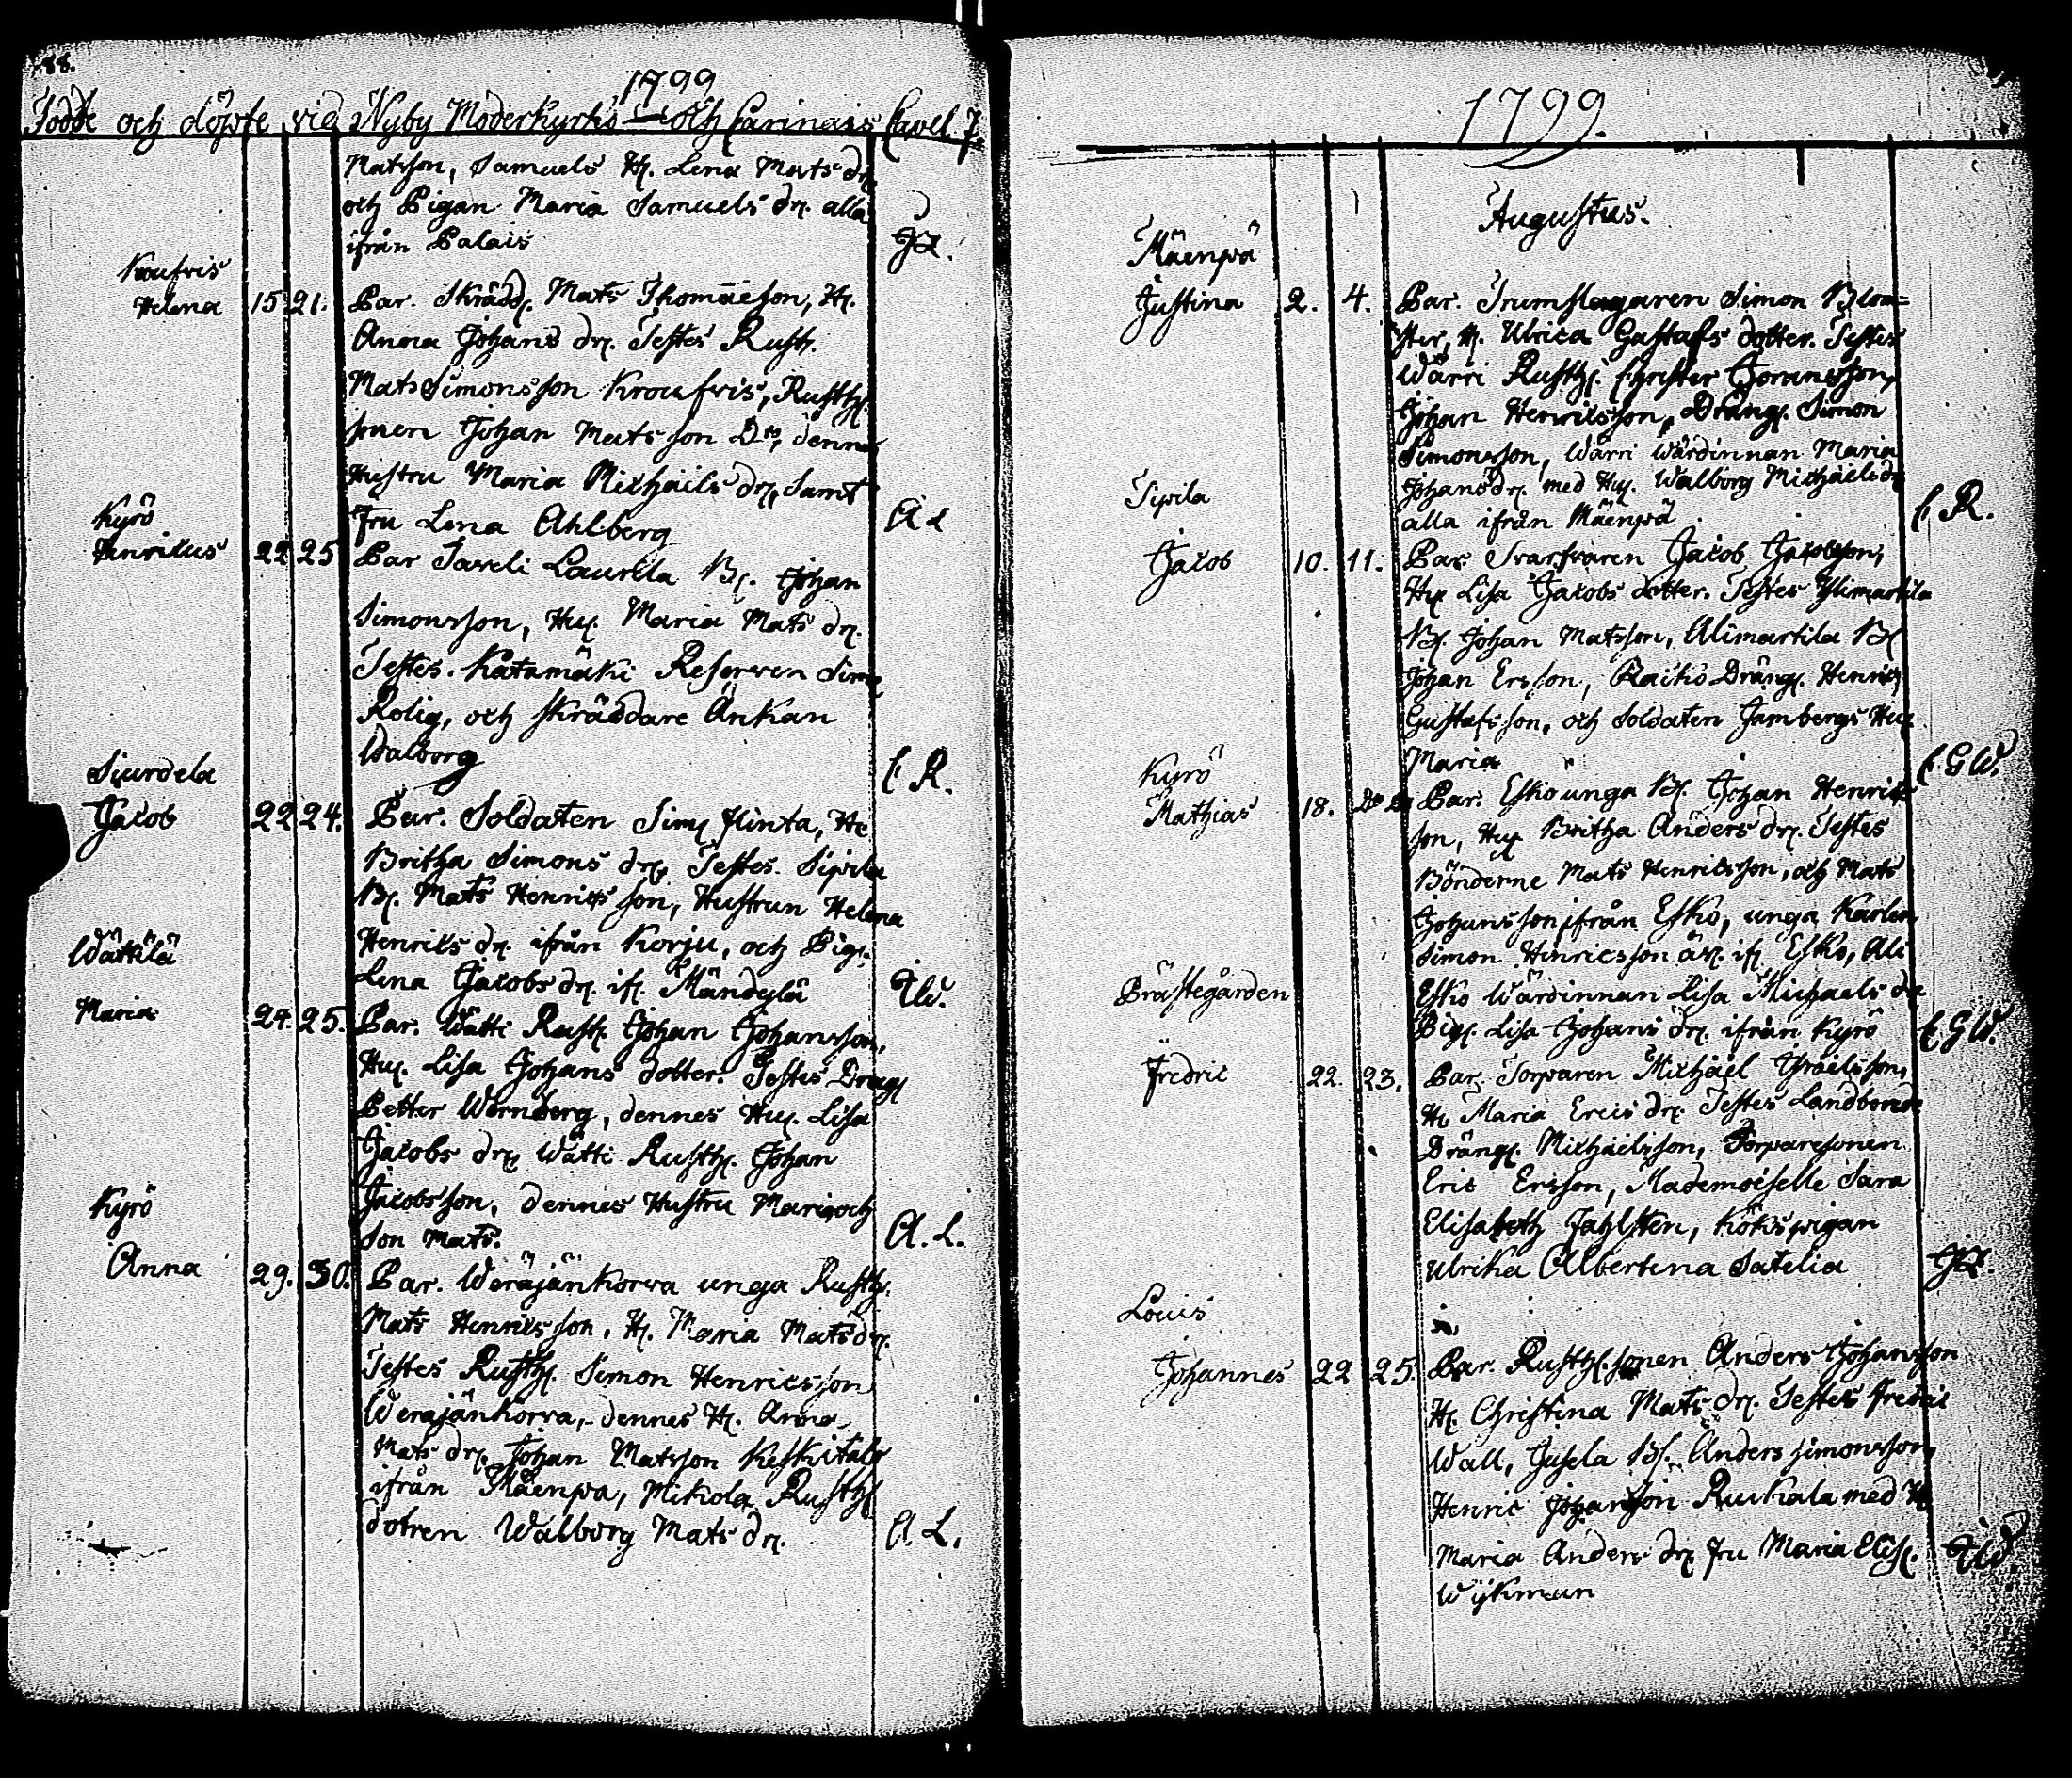 88.
1799
Född och döpte vid Nyby Moderkyrko och Carinais Capel.
Matsson, Samuels H. Lena Mats dr.
och Pigan Maria Samuels dr. alla
ifrån Palais
Kroufvis
Helena 15. 21. Par. Skrädd. Mats Thomaeson, H.
Anna Johans dr. Testes Rusth.
Mats Simonsson Kroufvis, Rusth.
sonen Johan Matsson Do, dennes
Hustru Maria Michails dr, Samt
Fru Lena Ahlberg A L
Kyrö
Henricus 22 25 Par Saveli Laurila B. Johan
Simonsson, Hu. Maria Mats dr.
Testes. Katamäki Reserven Simo
Rolig, och skräddare Änkan
Walborg C. R.
Sjurdela
Jacob 22 24. Par. Soldaten Sim Flinta, H
Britha Simons dr. Testes. Sipila
B. Mats Henricsson, Hustrun Helena
Henrics dr. ifrån Korju, och Pig.
Lena Jacobs dr. if. Mändylä
Wättilä
Maria 24. 25. Par. Wätti Rusth. Johan Johansson,
Hu. Lisa Johans dotter. Testes Dreng
Petter Wernberg, dennes Hu. Lisa
Jacobs dr. Wätti Rusth. Johan
Jacobsson, dennes Hustru Maria och
son Mats. A. L.
Kyrö
Anna 29. 30. Par. Weräjänkorva unga Rusth.
Mats Henricsson, H. Maria Mats dr.
Testes Rusth. Simon Henricsson
Weräjänkorva, dennes H. Anna
Mats dr. Johan Matsson Keskitalo
ifrån Mäenpä, Mikola Rusth.
dotren Walborg Mats dr. A. L.
1799.
Augustus.
Mäenpä
Justina 2. 4. Par. Trumslagaren Simon Blom=
ster, H. Ulrica Gustafs dotter. Testes
Wärri Rusth. Christer Göransson,
Johan Henricsson, Dräng. Simon
Simonsson, Wärri Wärdinnan Maria
Johans dr. med Hu. Walborg Michaels dr
alla ifrån Mäenpä C. R.
Sipila
Jacob 10. 11. Par. Svarfvaren Jacob Jacobsson,
Hu Lisa Jacobs dotter. Testes Ylimartila
B. Johan Matsson, Alimartila B
Johan Ersson, Raiko Dräng. Henric
Gustafsson, och Soldaten Jambergs Hu
Maria C. G W.
Kyrö
Mathias 18. Par. Esko unga B. Johan Henrics
son, Hu Britha Anders dr. Testes
Bönderne Mats Henricsson, och Mats
Johansson ifrån Esko, unga Karlen
Simon Hinricsson äv. if. Esko, Ali
Esko Wärdinnan Lisa Michaels dr
Pig. Lisa Johans dr. ifrån Kyrö C. G W.
Prästegården
Fredric 22. 23. Par. Torparen Michael Israelsson,
H. Maria Erics dr. Testes Landbonde
Dräng. Michaelsson, Torparesonen
Eric Ersson, Mademoiselle Sara
Elisabeth Fahlsten, Kökspigan
Ulrika Albertina Satelia
Louis
Johannes 22 25. Par. Rusth. sonen Anders Johansson
H. Christina Mats dr. Testes Fredric
Wall, Jusela B. Anders Simonsson
Henric Johansson Ruukala med H
Maria Anders dr. Fru Maria Elis.
Wijkman